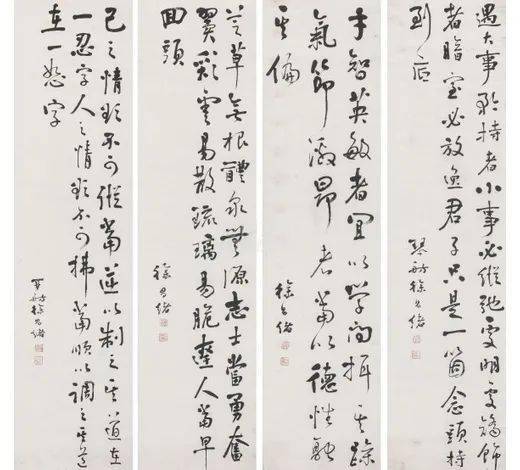 遇大事矜持者小事必縱弛處明處矯飾
者暗室必放逸君子只是一箇念頭持
到底
徐
才智英敏者宜以學問攝其躁
氣節激昂者當以德性融
其偏
徐
芝草無根醴泉無源志士當勇奮
翼彩雲易散琉璃易脆達人當早
回頭
徐
己之情欲不可縱當逆以制之其道在
一忍字人之情欲不可拂當順以調之其道
在一恕字
徐